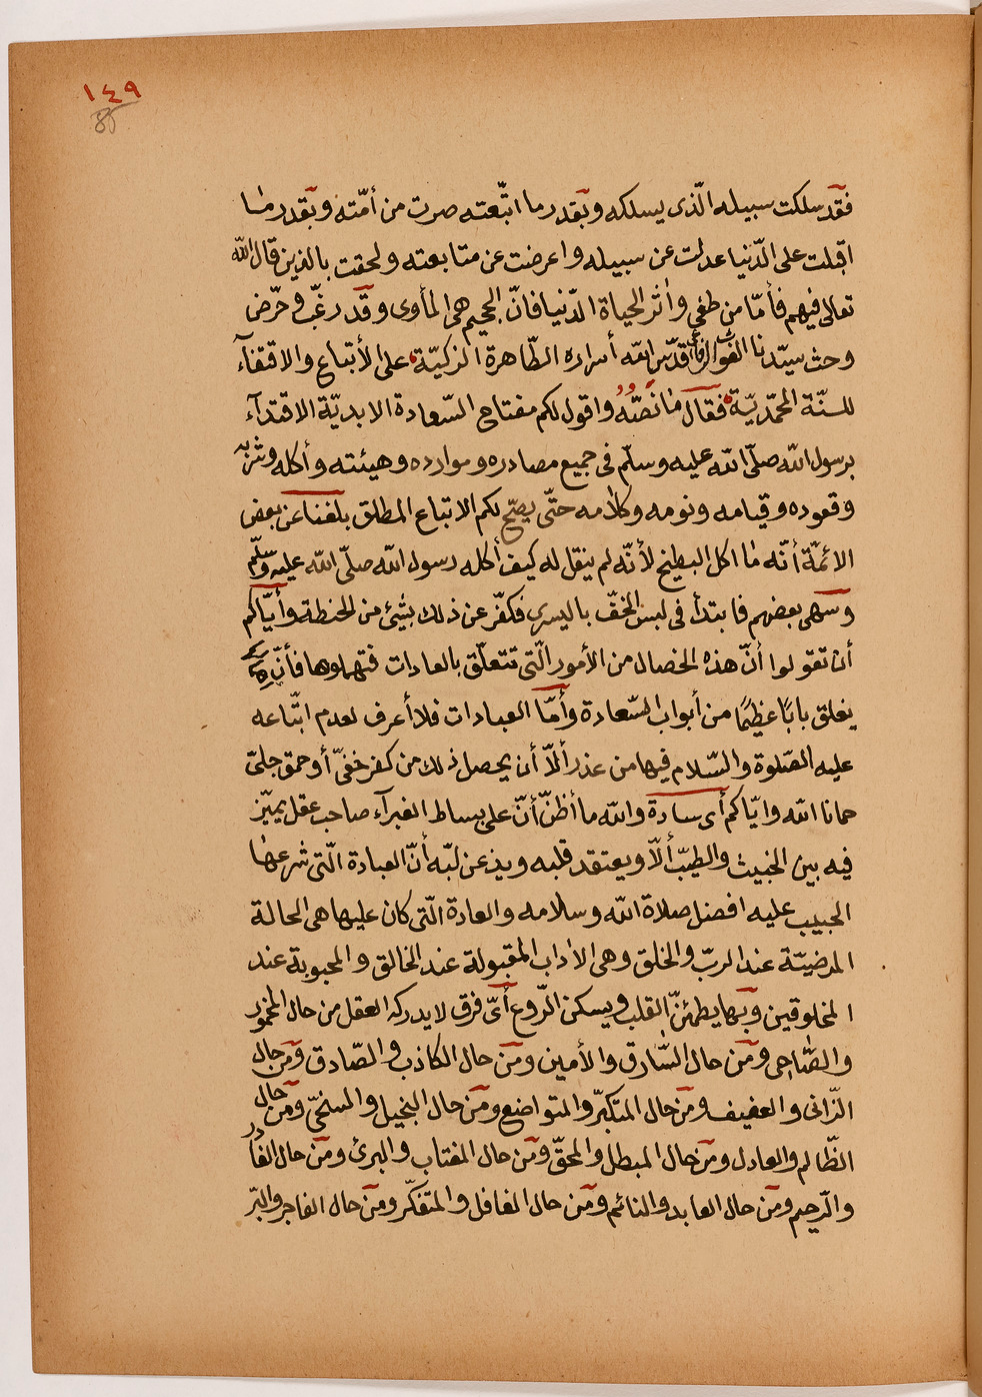 ١٤٩
85
فقد سلكت سبيله الّذى يسلكه وبقدر ما اتّبعته صرت من أمّته وبقدر ما
اقبلت على الدّنيا عدلت عن سبيله واعرضت عن متابعته ولحقت بالذين قال اللّه
تعالى فيهم فأمّا من طغى وآثر الحياة الدّنيا فانّ الجحيم هى المأوى وقد رغّب وحرّض
وحث سيّدنا الغوث الرفاعى قدّس اللّه أسراره الطّاهرة الزكيّة على الأتباع والاقتفآء
للسنّة المحمّديّة فقال ما نصّه واقول لكم مفتاح السّعادة الابديّة الاقتدآء
برسول اللّه صلّى اللّه عليه وسلّم فى جميع مصادره وموارده وهيئته وأكله وشربه
وقعوده وقيامه ونومه وكلامه حتّى يصحّ لكم الاتباع المطلق بلغنا عن بعض
الائمّة أنّه ما اكل البطيخ لأنّه لم ينقل له كيف أكله رسول اللّه صلّى اللّه عليه وسلّم
وسهى بعضهم فابتدأ فى لبس الخفّ باليسرى فكفّر عن ذلك بشئ من الحنطة وأيّاكم
أن تقولوا أنّ هذه الخصال من الأمور الّتى تتعلّق بالعادات فتهملوها فأنّ تركها
يغلق بابًا عظيمًا من أبواب السّعادة وأمّا العبادات فلا أعرف لعدم اتّباعه
عليه الصّلوة والسّلام فيها من عذر ألّا أن يحصل ذلك من كفر خفىّ أو حمق جلىّ
حمانا اللّه وايّاكم أى سادة واللّه ما أظنّ أنّ على بساط الغبرآء صاحب عقل يميّز
فيه بين الخبيث والطيّب ألّا ويعتقد قلبه ويذعن لبّه أنّ العبادة الّتى شرعها
الحبيب عليه افضل صلاة اللّه وسلامه والعادة الّتى كان عليها هى الحالة
المرضيّة عند الربّ والخلق وهى الآداب المقبولة عند الخالق والمحبوبة عند
المخلوقين وبها يطمئنّ القلب ويسكن الرّوع أىّ فرق لا يدركه العقل من حال المخمور
والصّاحى ومن حال السّارق والأمين ومن حال الكاذب والصّادق ومن حال
الزّانى والعفيف ومن حال المتكبّر والمتواضع ومن حال البخيل والسخىّ ومن حال
الظّالم والعادل ومن حال المبطل والمحقّ ومن حال المغتاب والبرئ ومن حال الغادر
والرّحيم ومن حال العابد والنائم ومن حال الغافل والمتفكّر ومن حال الفاجر والبرّ